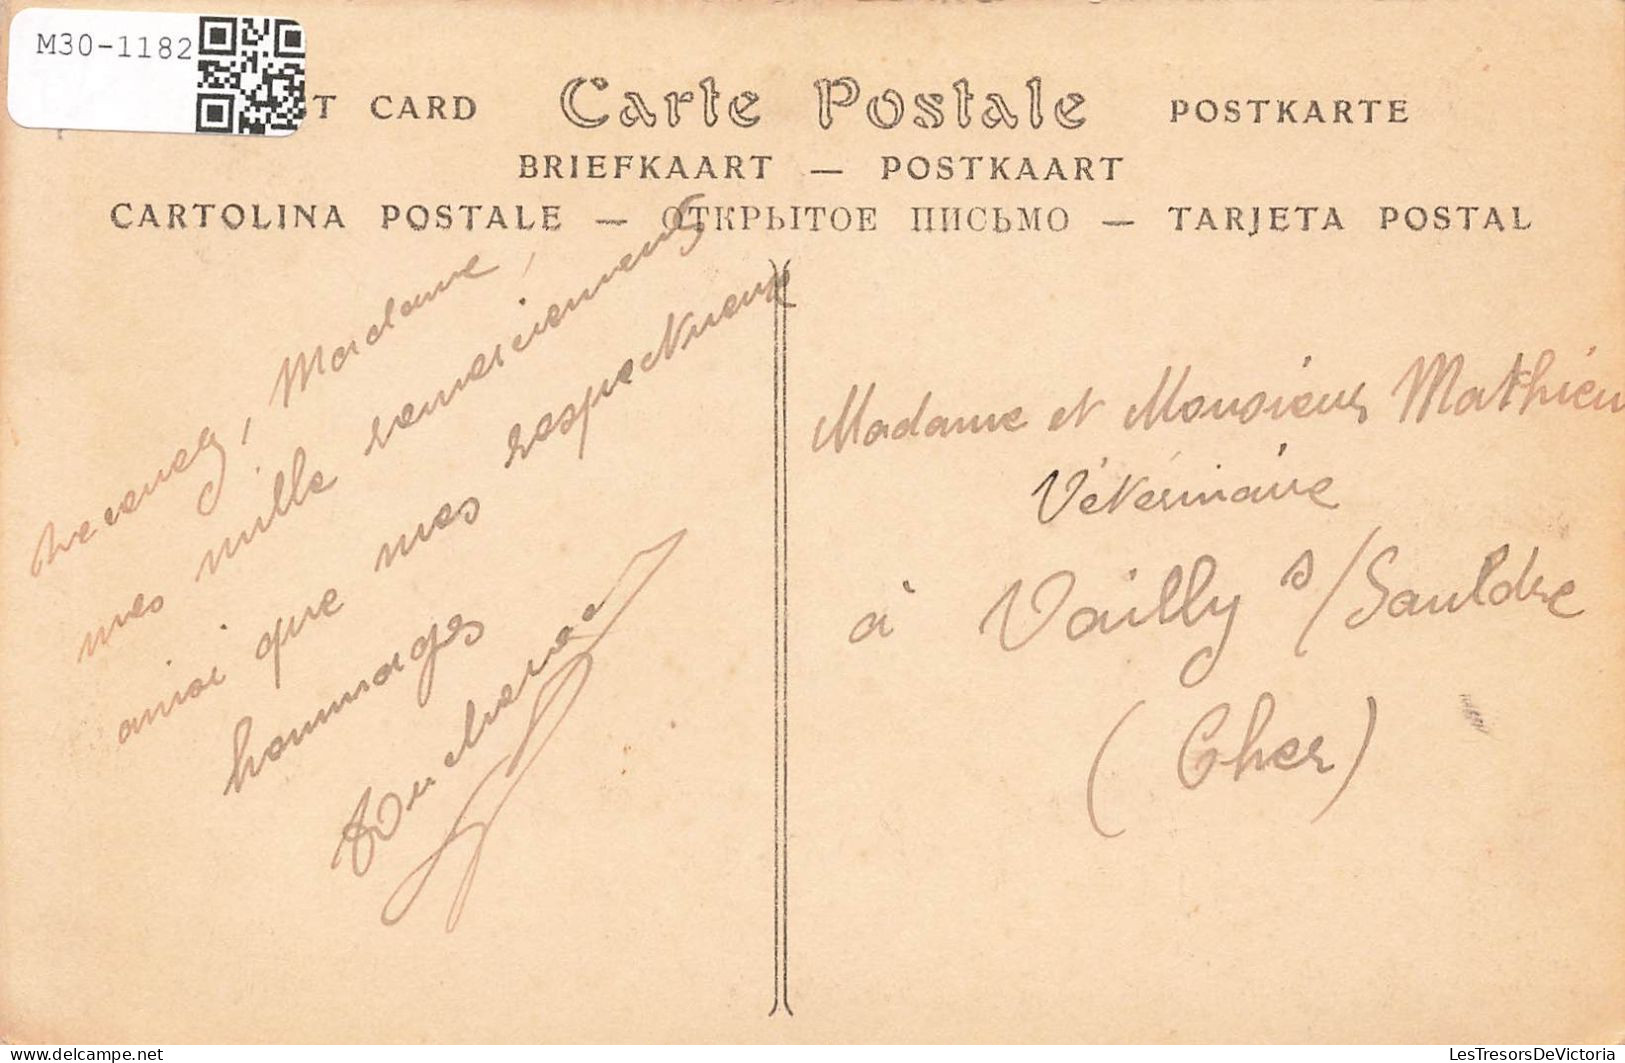 M30-1182
T CARD Carte Postale POSTKARTE
BRIEFKAART — POSTKAART
CARTOLINA POSTALE — ОТКРЫТОЕ ПИСЬМО — TARJETA POSTAL
Recevez, Madame,
mes mille remerciements
ainsi que mes respectueux
hommages
Madame et Monsieur Mathieu
Vétérinaire
à Vailly s/Sauldre
(Cher)
LesTresorsDeVictoria